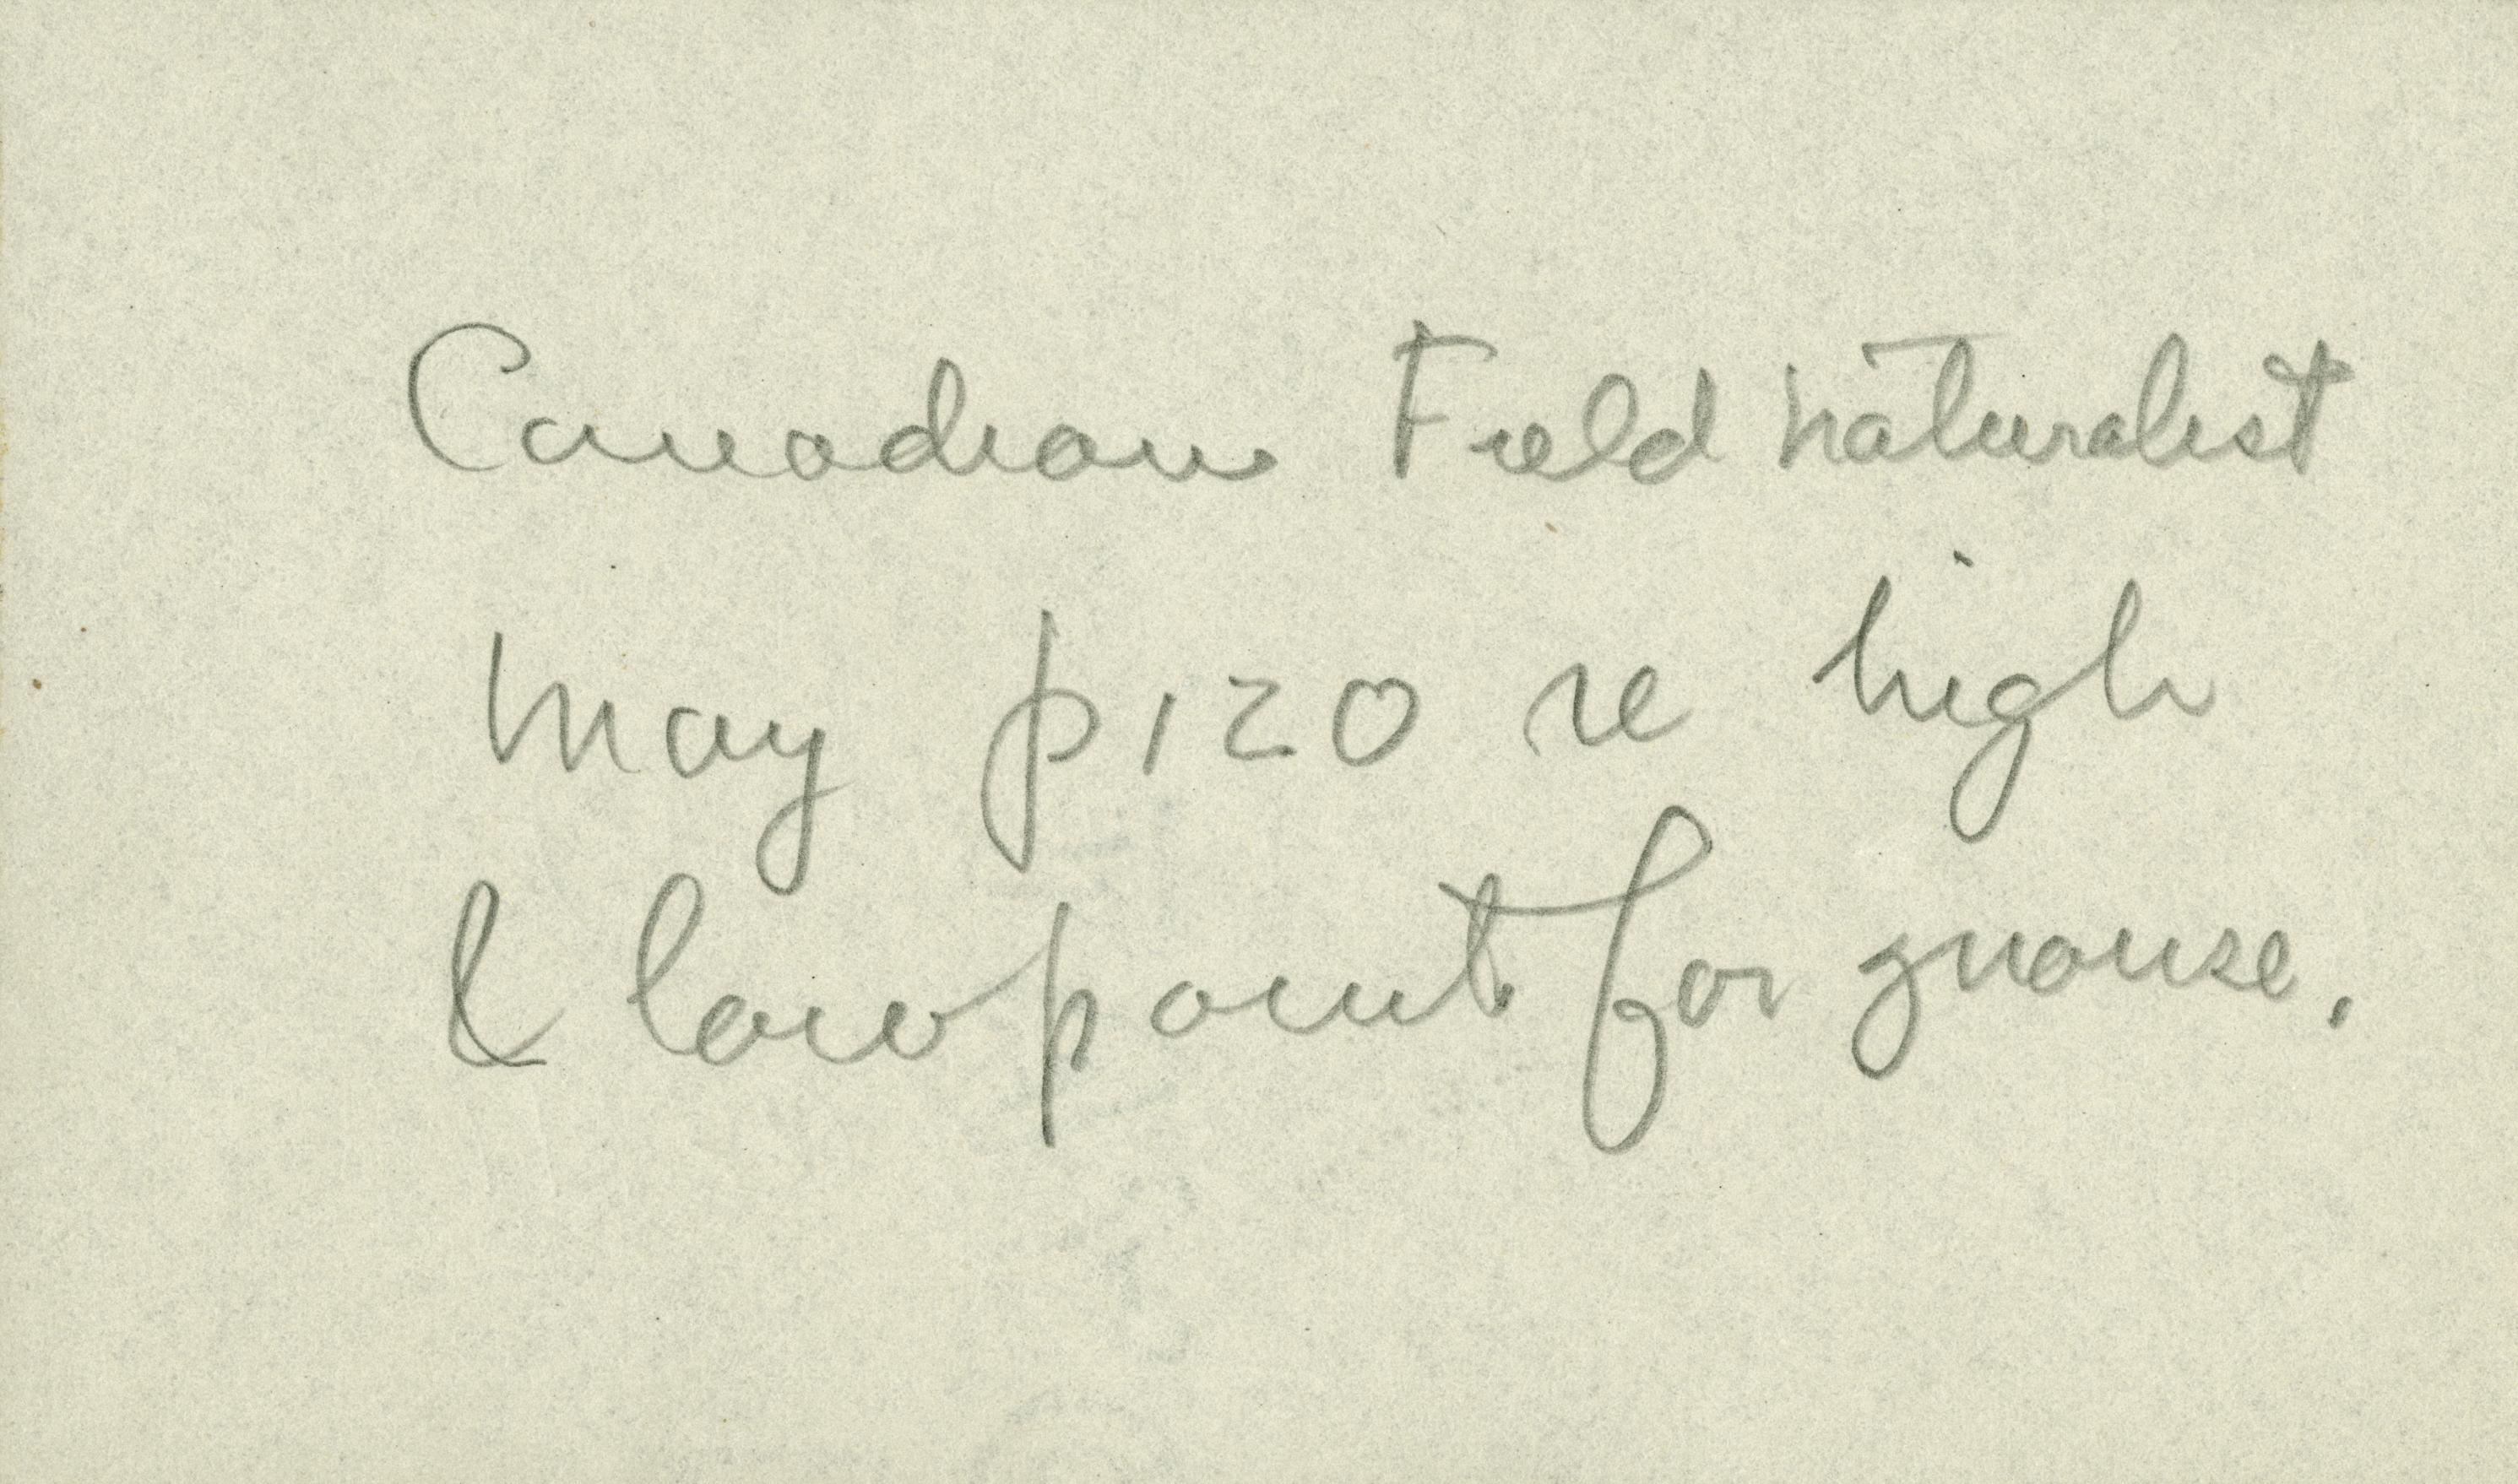 Canadian Field naturalist
May p120 re high
& low point for grouse.